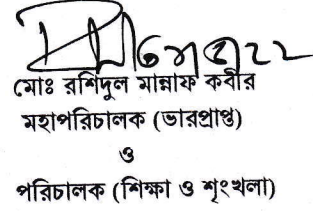 মোঃ রশিদুল মান্নাফ কবীর
মহাপরিচালক (ভারপ্রাপ্ত)
ও
পরিচালক (শিক্ষা ও শৃংখলা)